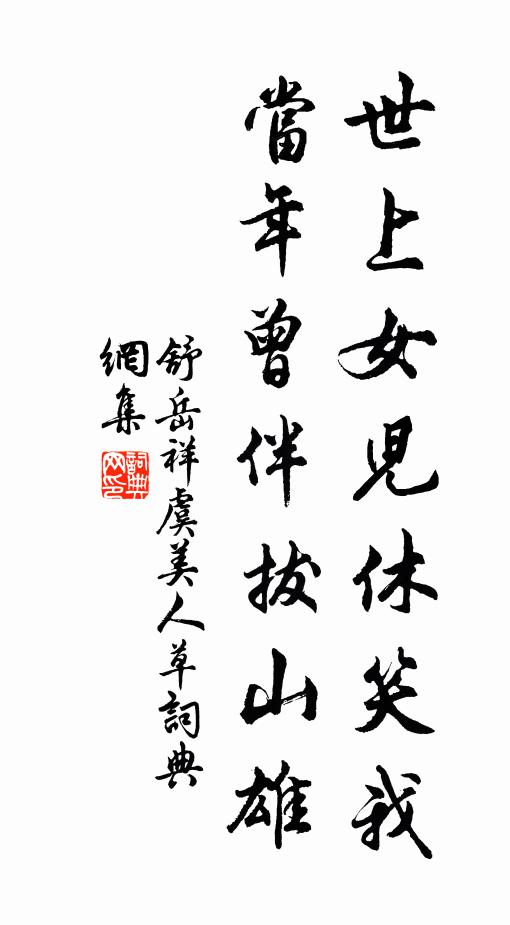 世上女児休笑我
當年曾伴拔山雄
舒岳祥虞美人草詞典
網集
詞典網印